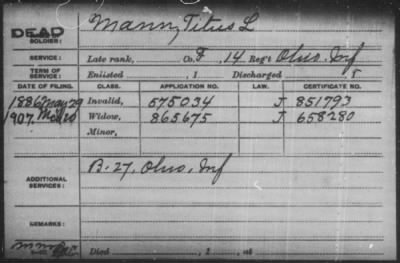 DEAD
SOLDIER: Mann, Titus L
SERVICE: Late rank, Co. F, 14 Reg't Ohio. Inf
TERM OF SERVICE: Enlisted , 1 Discharged , 1
DATE OF FILING. CLASS. APPLICATION NO. LAW. CERTIFICATE NO.
1886 May 29 Invalid, 575034 J 851793
1907 Widow, 865675 J 658280
Minor,
B. 27. Ohio. Inf
ADDITIONAL SERVICES:
REMARKS:
Died , 1 , at